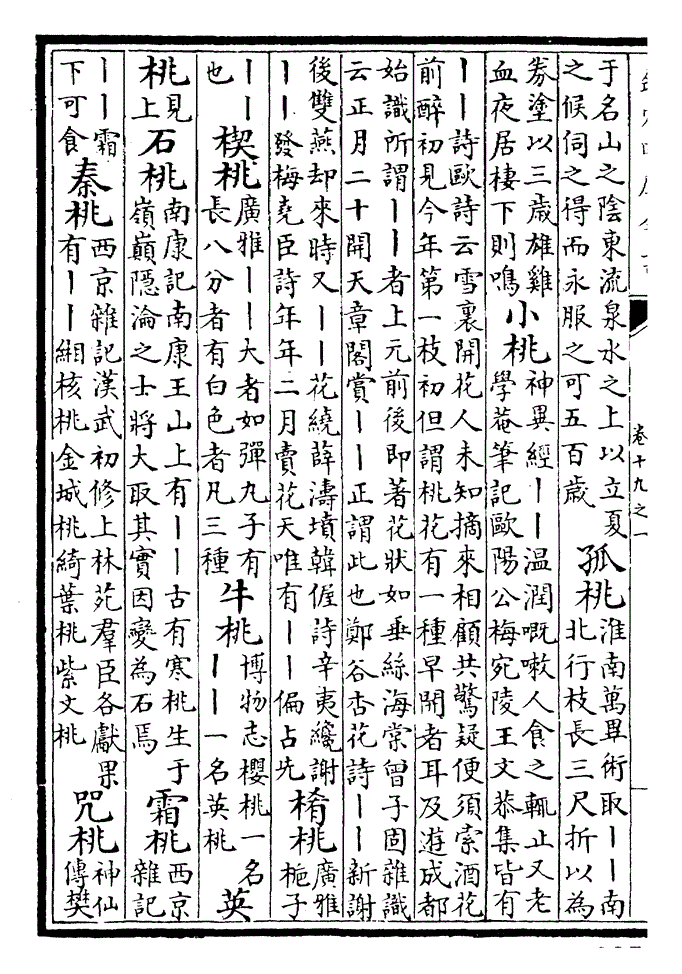 卷十九之一
于名山之陰東流泉水之上以立夏
之候伺之得而永服之可五百歲
孤桃
淮南萬畢術取丨丨南
北行枝長三尺折以為
劵塗以三歲雄雞
血夜居棲下則鳴
小桃
神異經丨丨温潤嘅嗽人食之輒止又老
學菴筆記歐陽公梅宛陵王文恭集皆有
丨丨詩歐詩云雪裏開花人未知摘來相顧共驚疑便須索酒花
前醉初見今年第一枝初但謂桃花有一種早開者耳及遊成都
始識所謂丨丨者上元前後即著花狀如垂絲海棠曾子固雜識
云正月二十開天章閣賞丨丨正謂此也鄭谷杏花詩丨丨新謝
後雙燕却來時又丨丨花繞薛濤墳韓偓詩辛夷纔謝
丨丨發梅堯臣詩年年二月賣花天唯有丨丨偏占先
楈桃
廣雅
梔子
丨丨
也
楔桃
廣雅丨丨大者如彈丸子有
長八分者有白色者凡三種
牛桃
博物志櫻桃一名
丨丨一名英桃
英
桃
見
上
石桃
南康記南康王山上有丨丨古有寒桃生于
嶺巔隱淪之士將大取其實因變為石焉
霜桃
西京
雜記
丨丨霜
下可食
秦桃
西京雜記漢武初修上林苑羣臣各獻果
有丨丨緗核桃金城桃綺葉桃紫文桃
咒桃
神仙
傳樊